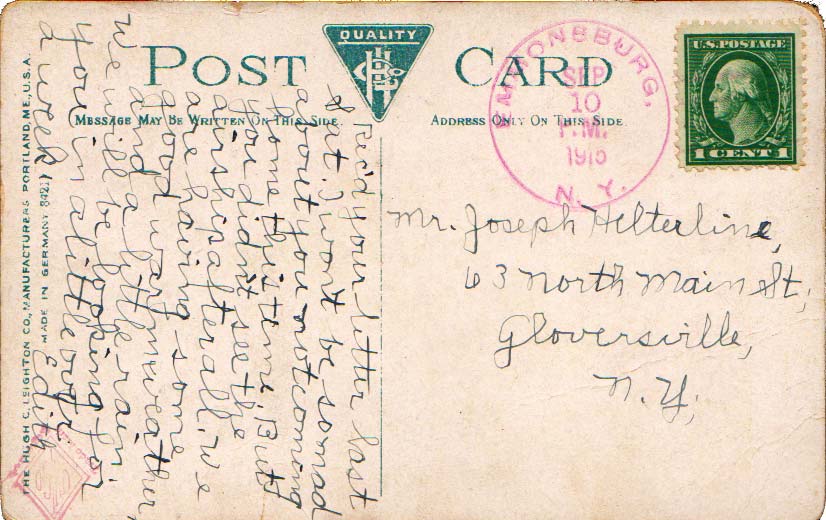 QUALITY
POST CARD
MESSAGE MAY BE WRITTEN ON THIS SIDE.
ADDRESS ONLY ON THIS SIDE.
SEP
10
P.M.
1915
N. Y.
U.S. POSTAGE
1 CENT 1
Rec'd your letter last
Sat. I won't be so mad
about you not coming
some this time. But
you didn't see the
airship after all. We
are having some
good warm weather,
and a little rain.
We will be hopping for
you in a little over
a week, Edith
Mr. Joseph Helterline,
63 North Main St,
Gloversville,
N. Y.
THE HUGH C. LEIGHTON CO., MANUFACTURERS PORTLAND, ME., U.S.A.
MADE IN GERMANY